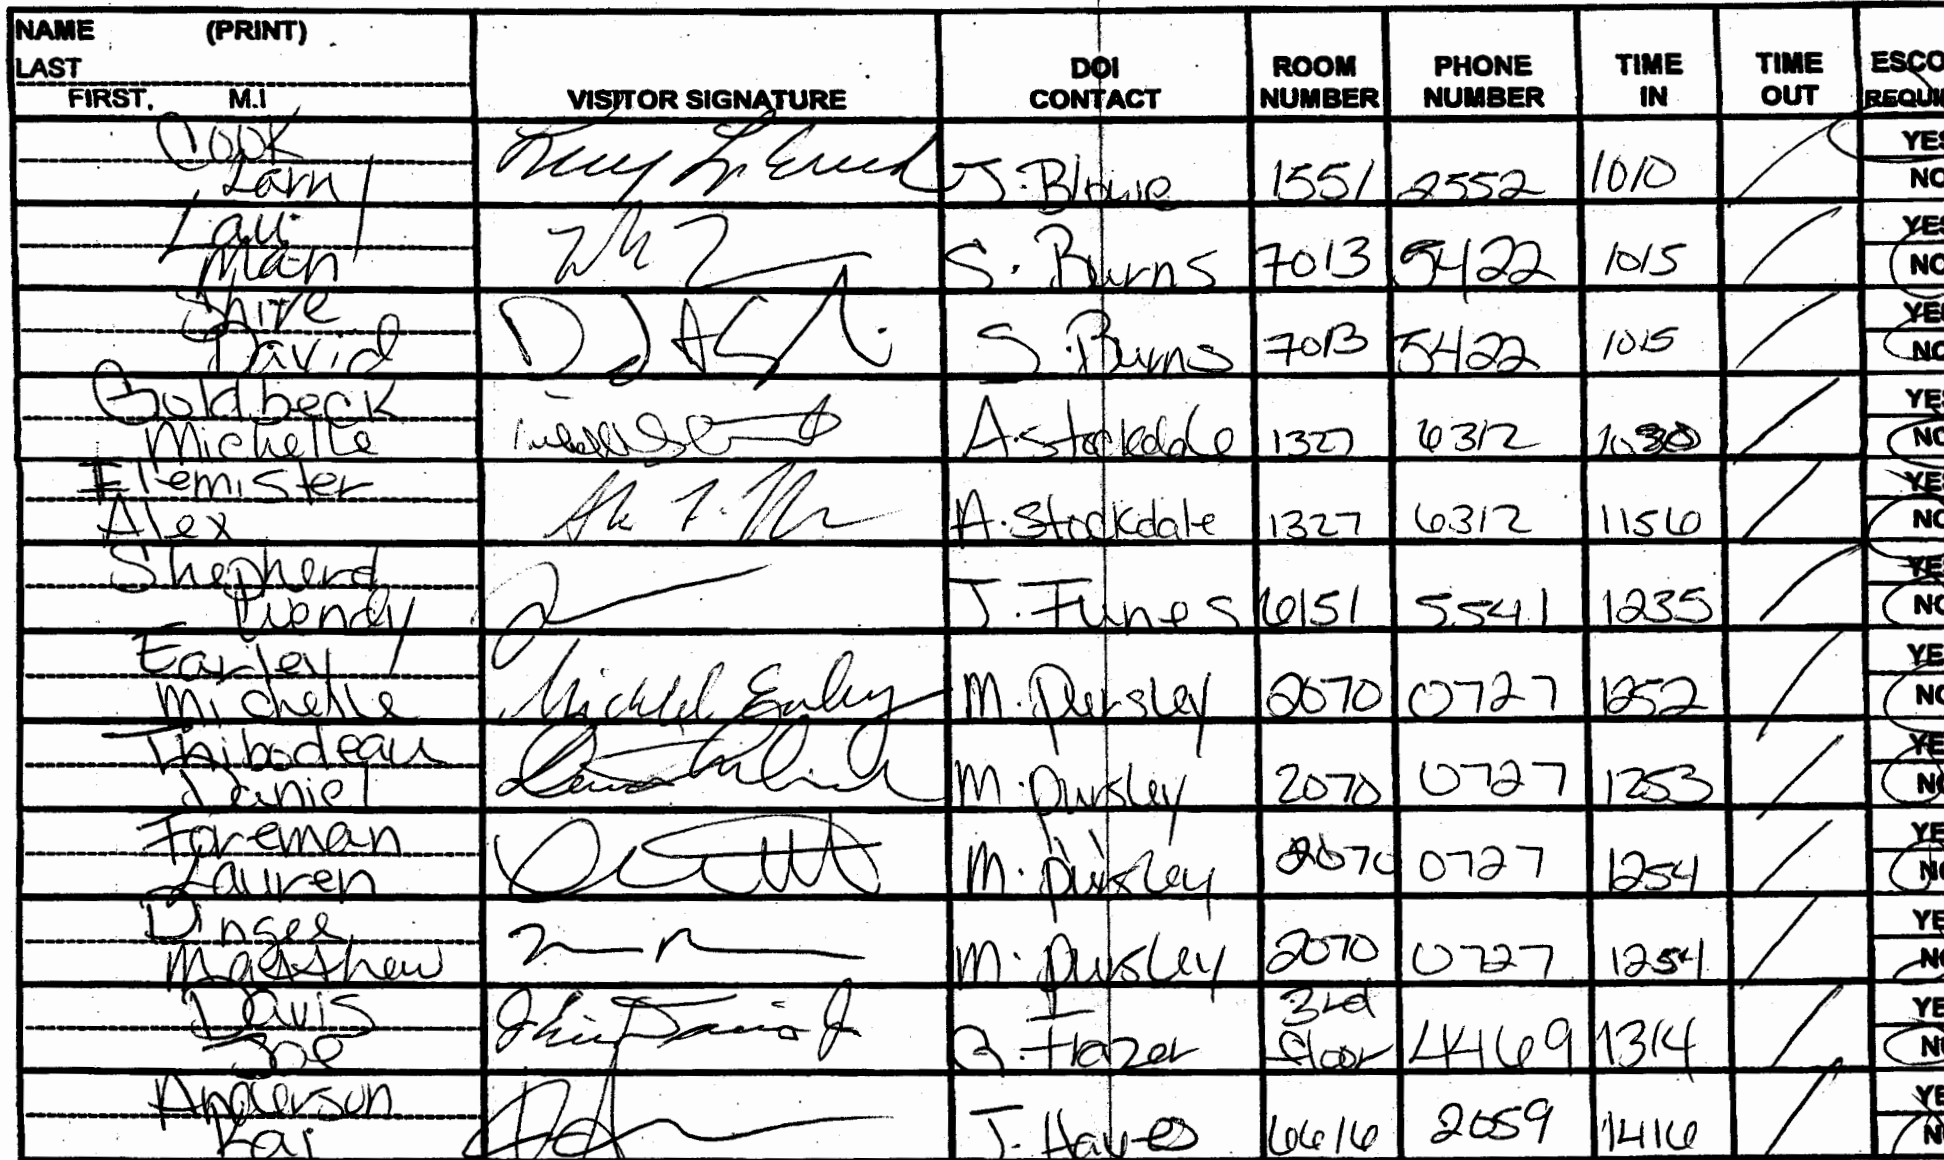 NAME (PRINT)
LAST
FIRST, M.I
VISITOR SIGNATURE
DOI
CONTACT
ROOM
NUMBER
PHONE
NUMBER
TIME
IN
TIME
OUT
ESCO
REQUI
Cook
Larry
J. Blowe 1551 2552 1010
YES
NO
Lau
Man
S. Burns 7013 5422 1015
YES
NO
Shire
David
S. Burns 7013 5422 1015
YES
NO
Goldbeck
Michelle
A. Stockdale 1327 6312 1030
YES
NO
Flemister
Alex
A. Stockdale 1327 6312 1156
YES
NO
Shepherd
Wendy
J. Funes 6151 5541 1235
YES
NO
Earley
Michelle
Michelle Earley
M. Pursley 2070 0727 1252
YE
NO
Thibodeau
Daniel
M. Pursley 2070 0727 1253
YE
NO
Foreman
Lauren
M. Pursley 2070 0727 1254
YE
NO
Dingee
Matthew
M. Pursley 2070 0727 1254
YE
NO
Davis
Joe
Frazer 3rd
floor 4469 1314
YE
NO
Anderson
Kai
J. Hayes 6616 2059 1416
YE
N